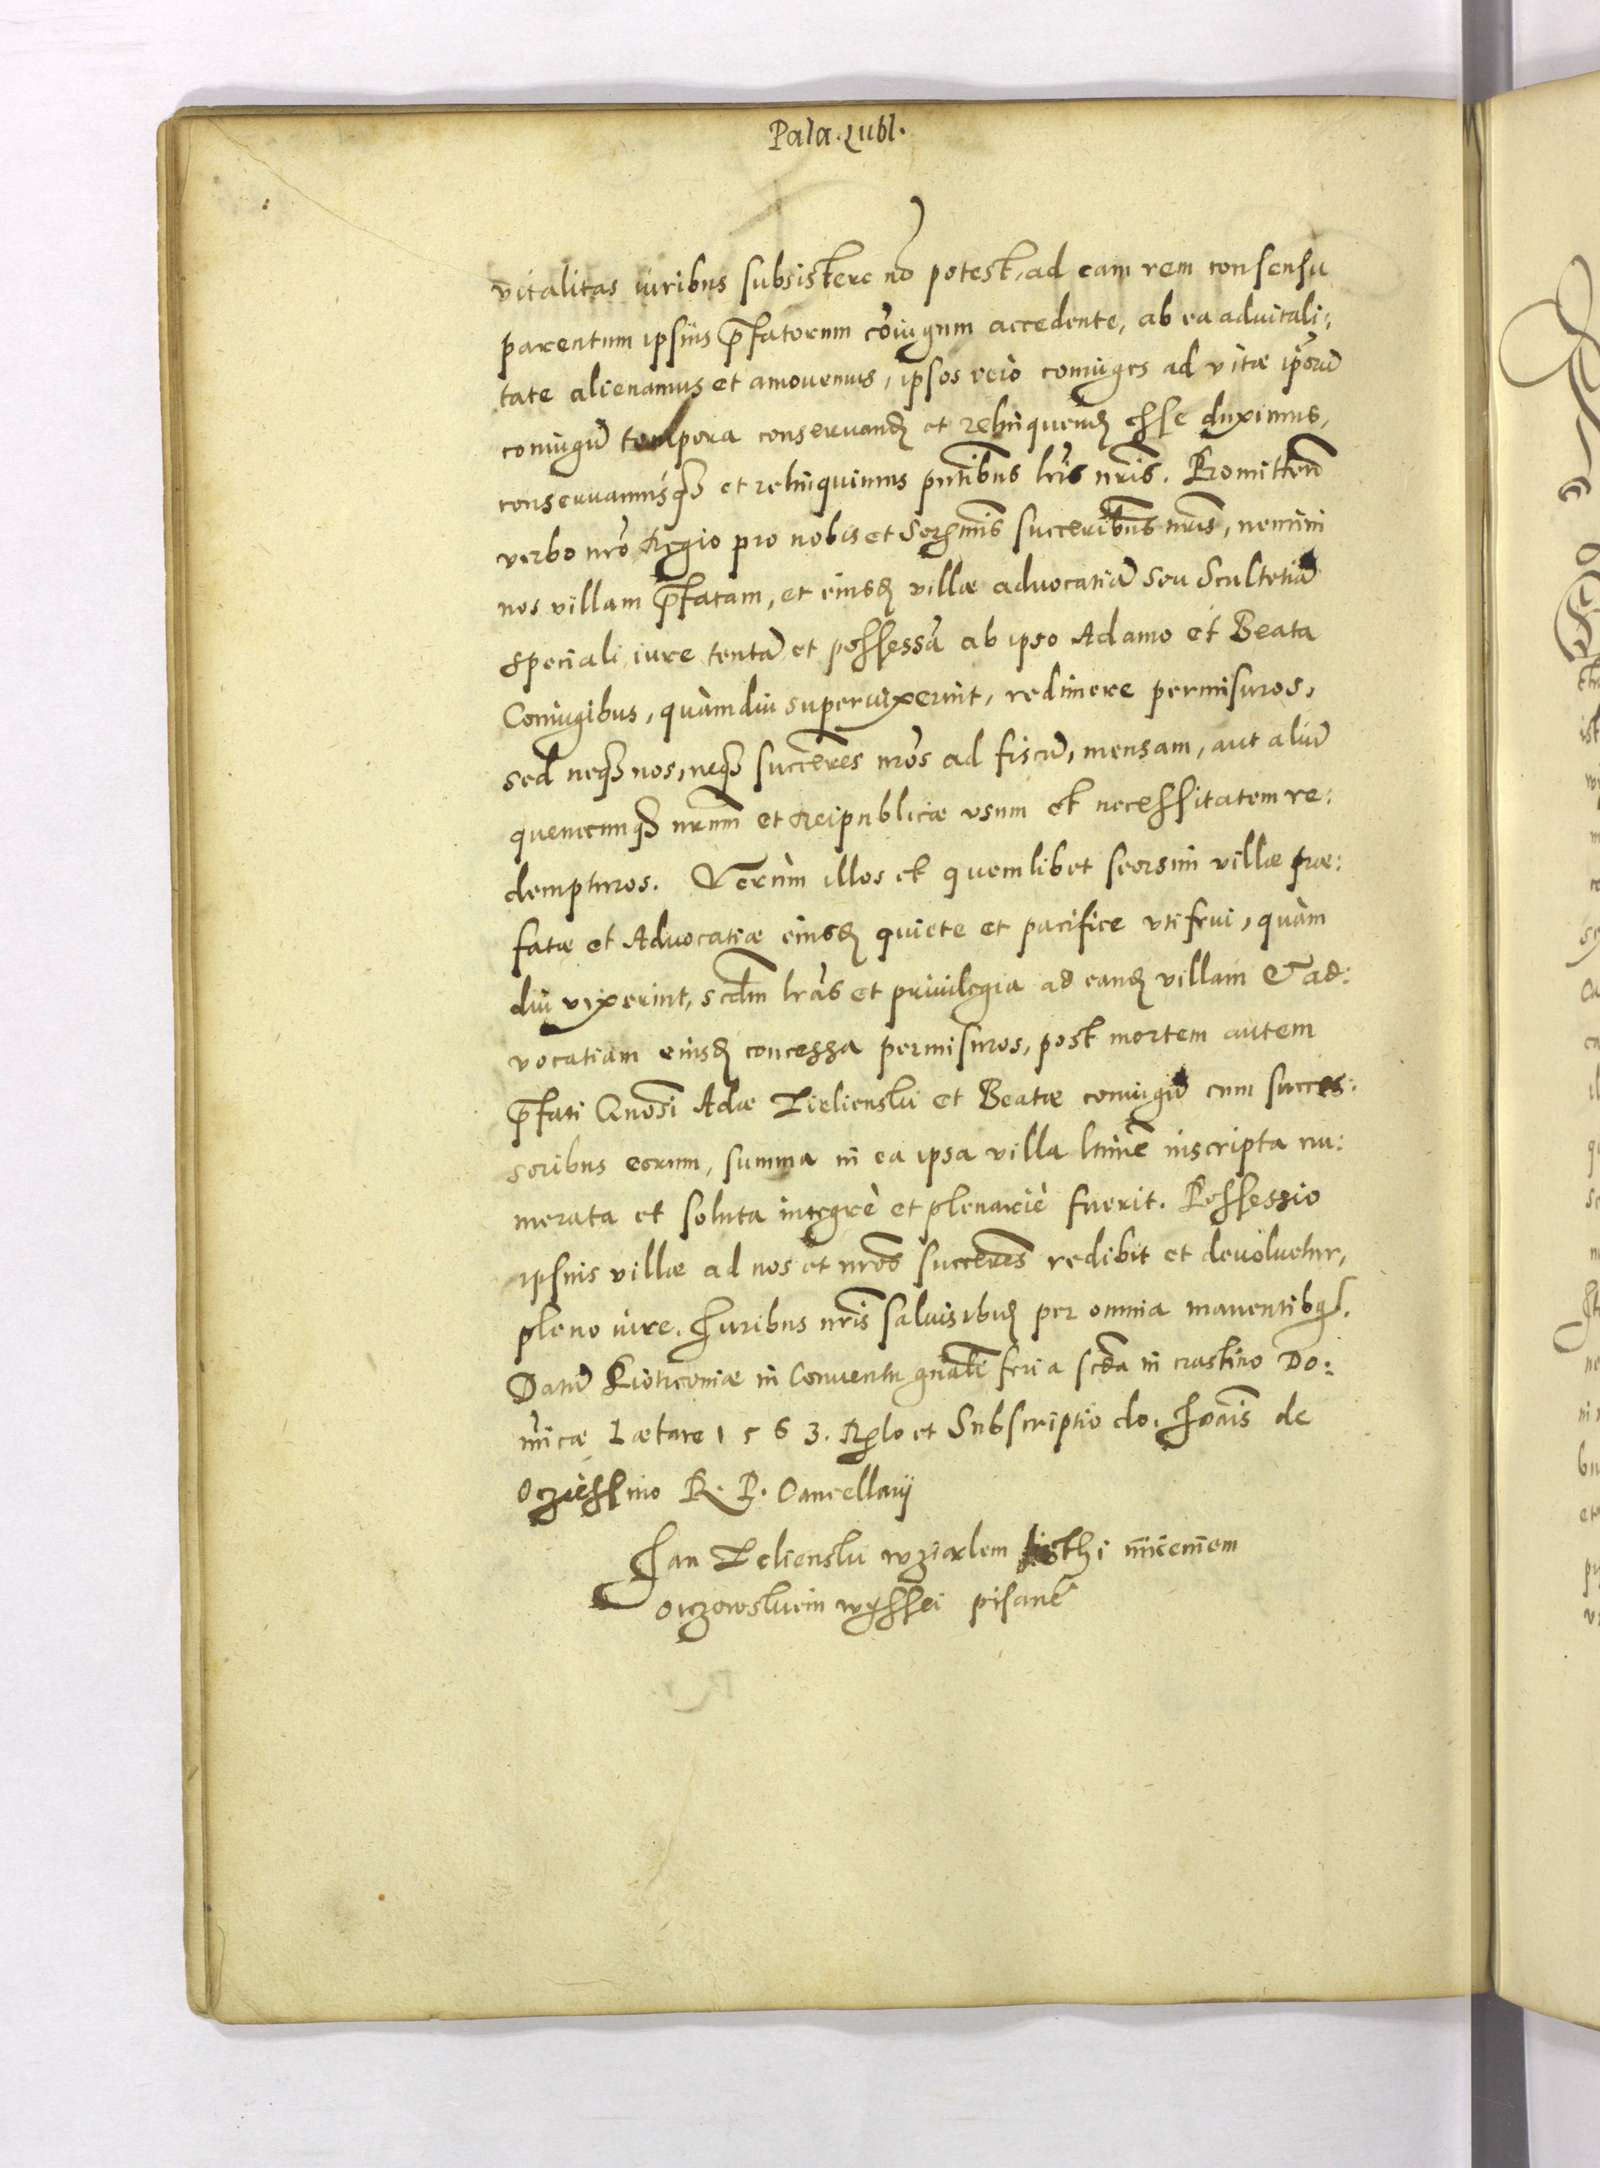 Pala. Lubl.
vitalitas iuribus subsistere nō potest, ad eam rem consensu
parentum ipsius p̄fatorum cōiugum accedente, ab ea aduitali:
tate alienamus et amouemus, ipsos vero coniuges ad vitæ ip̄orū
coniugū tempora conseruandꝫ et relinquendꝫ esse duximus,
conseruamusqꝫ et relinquimus pn̄tibus lr̄is nr̄is. Promitten̄
verbo nr̄o Regio pro nobis et Ser̄mis succeribus nr̄is, nemini
nos villam p̄fatam, et eiusdꝫ villæ advocatiā seu Scultetiā
speciali iure tentā et possessā ab ipso Adamo et Beata
Coniugibus, quàmdiu superuixerint, redimere permisuros,
sed neqꝫ nos, neqꝫ succēres nr̄os ad fiscū, mensam, aut aliū
quemcunqꝫ nr̄um et Reipublicæ vsum et necessitatem re:
dempturos. Verùm illos et quemlibet seorsim villæ præ:
fatæ et Advocatiæ eiusdꝫ quiete et pacifice vti frui, quàm
diu vixerint, scdm̄ lr̄as et priuilegia ad eandꝫ villam et ad:
vocatiam eiusdꝫ concessa permisuros, post mortem autem
p̄fati Gn̄osi Adæ Zielienski et Beatæ coniugū cum succes:
soribus eorum, summa in ea ipsa villa ltimē inscripta nu:
merata et soluta integrè et plenariè fuerit. Possessio
ipsius villæ ad nos et nr̄os succeres redibit et deuoluetur,
pleno iure. Iuribus nr̄is saluis ibidꝫ per omnia manentibqꝫ.
Datū Piotrcouiæ in Conuentu gn̄ali feria scd̄a in crastino Do:
m̄icæ Lætare 1563. Rel̄o et Subscriptio do. Joān̄is de
Oczieschino R. P. Cancellarij
Jan Zelienski wzialem listhi imieniem
oiczowskiem wyssei pisane